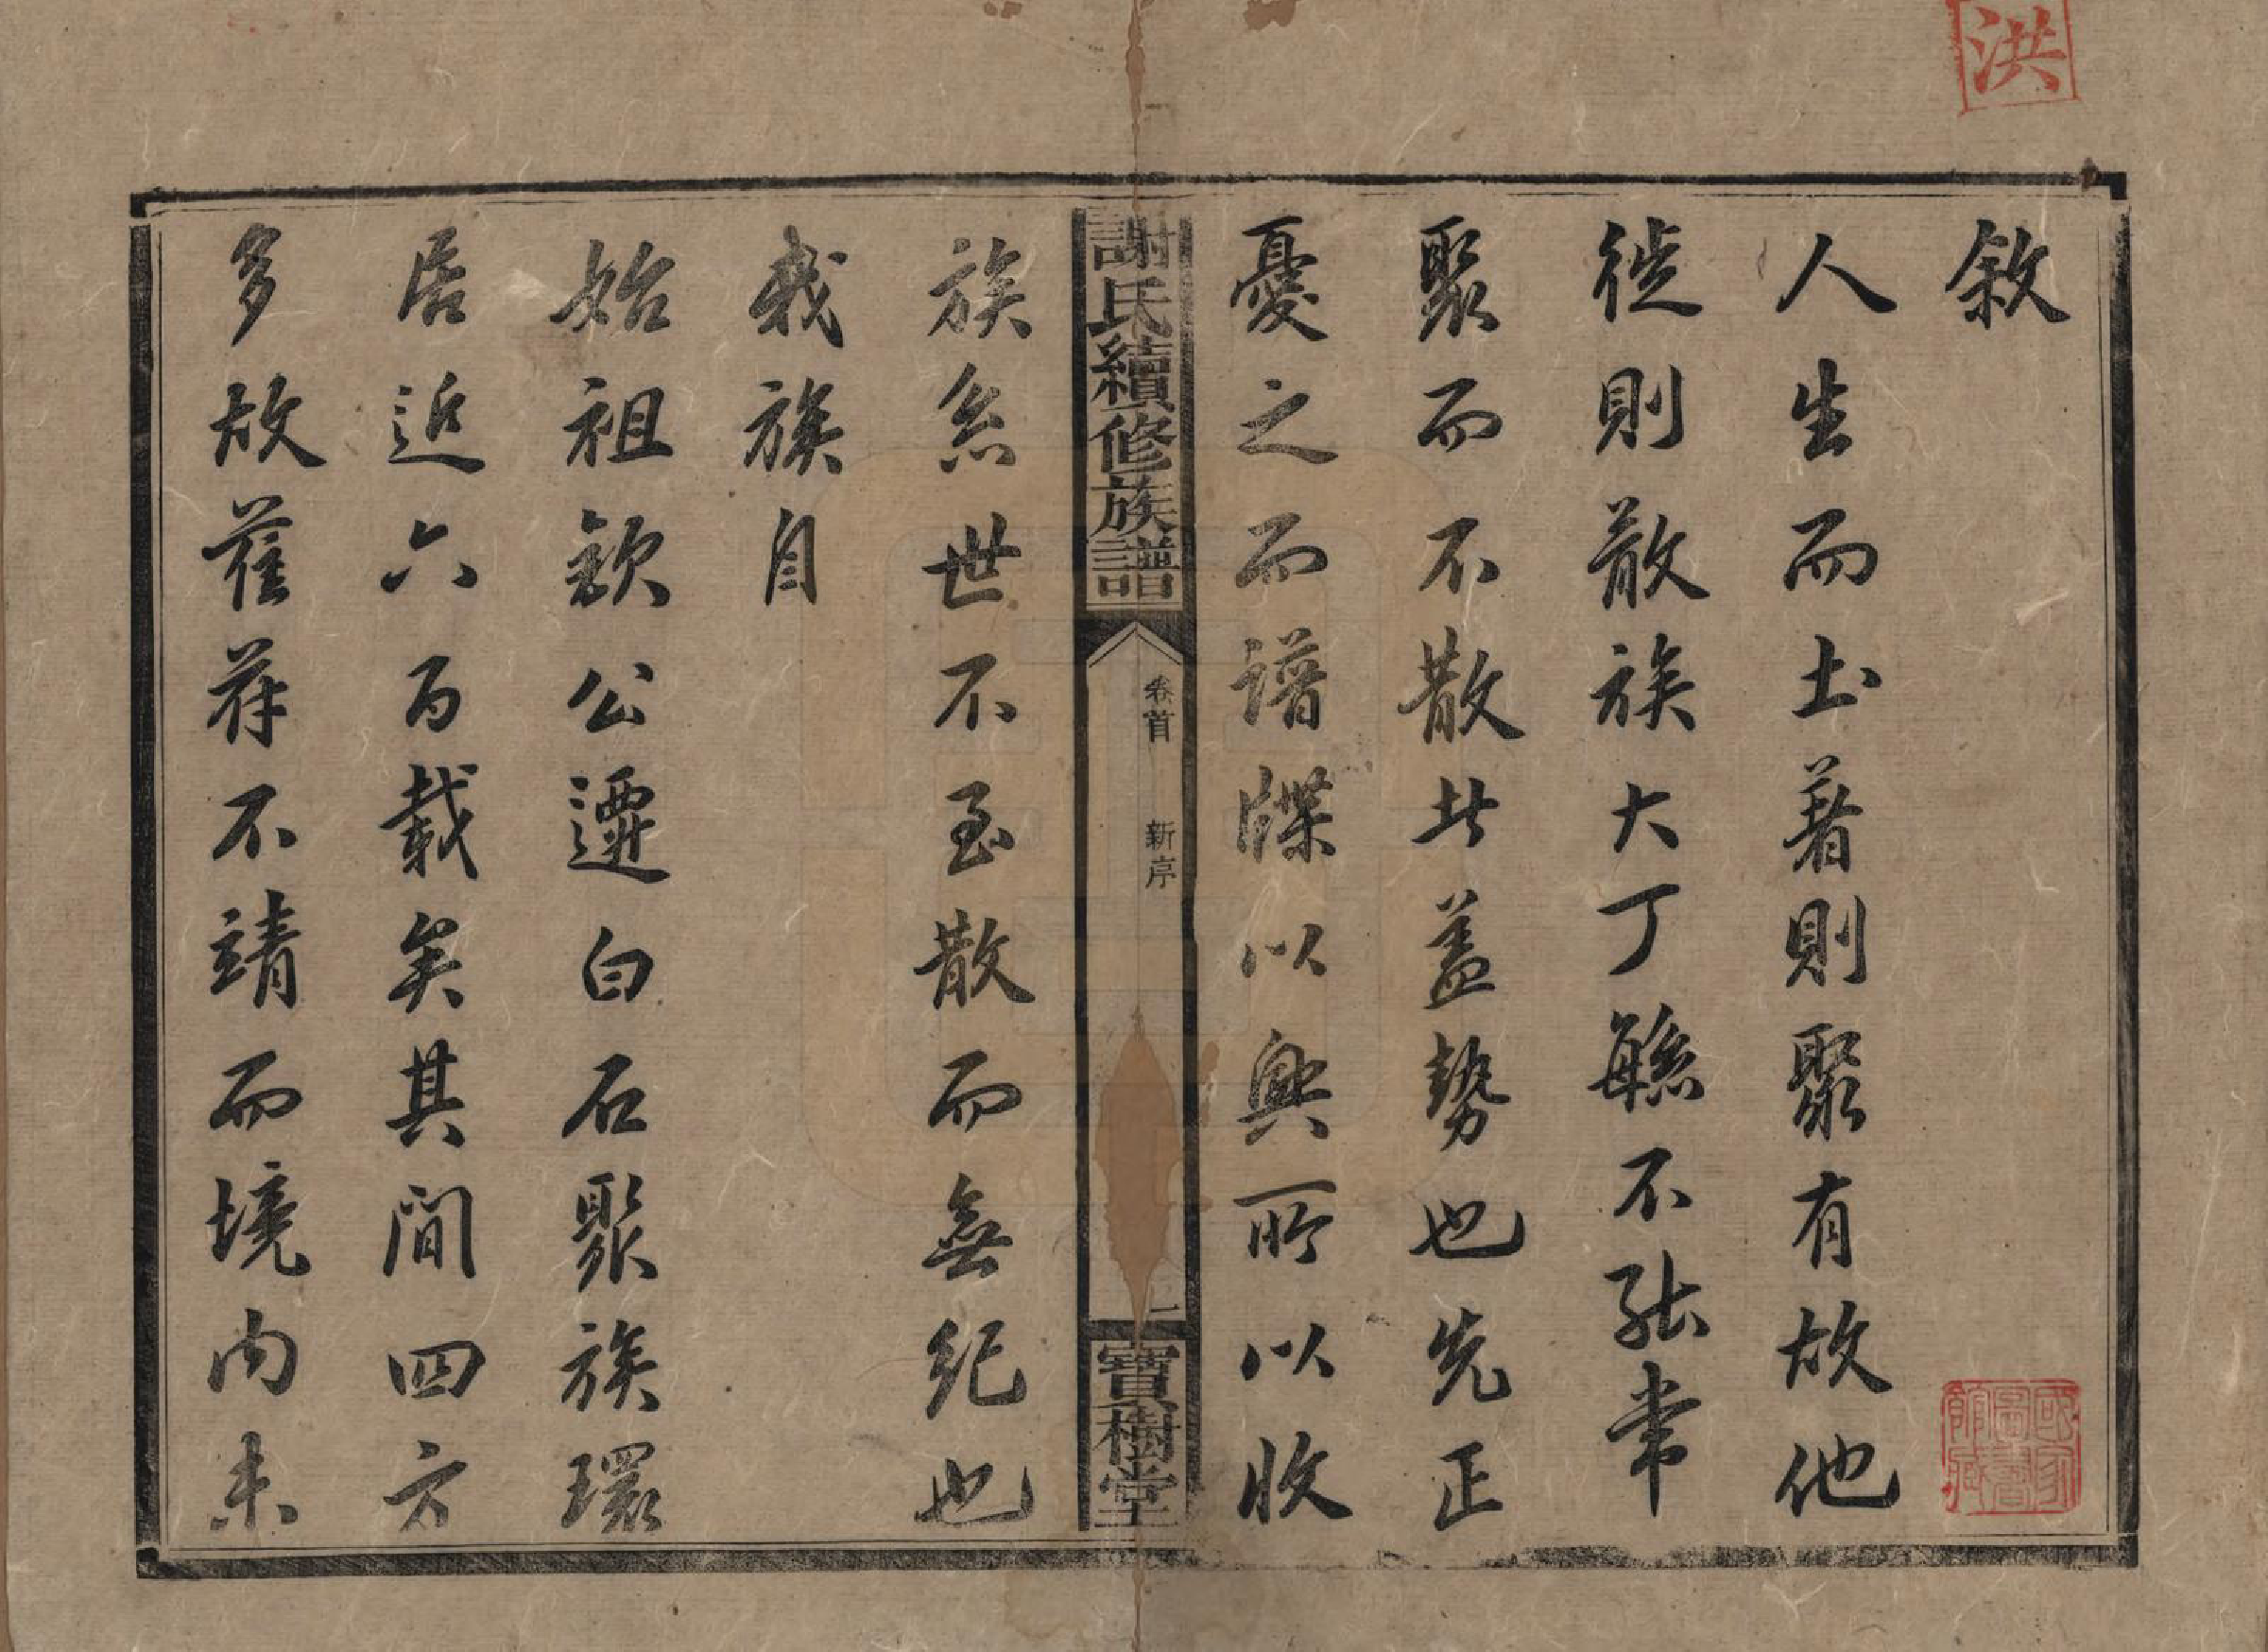 洪
敘
人生而土著則聚有故他
徙則散族大丁繇不能常
聚而不散此蓋勢也先正
憂之而譜牒以興所以收
謝氏續修族譜
卷首 新序
一
寶樹堂
族系世不至散而無紀也
我族自
始祖欽公遷白石聚族環
居近六百載矣其間四方
多故萑苻不靖而境内未
國家圖書館藏